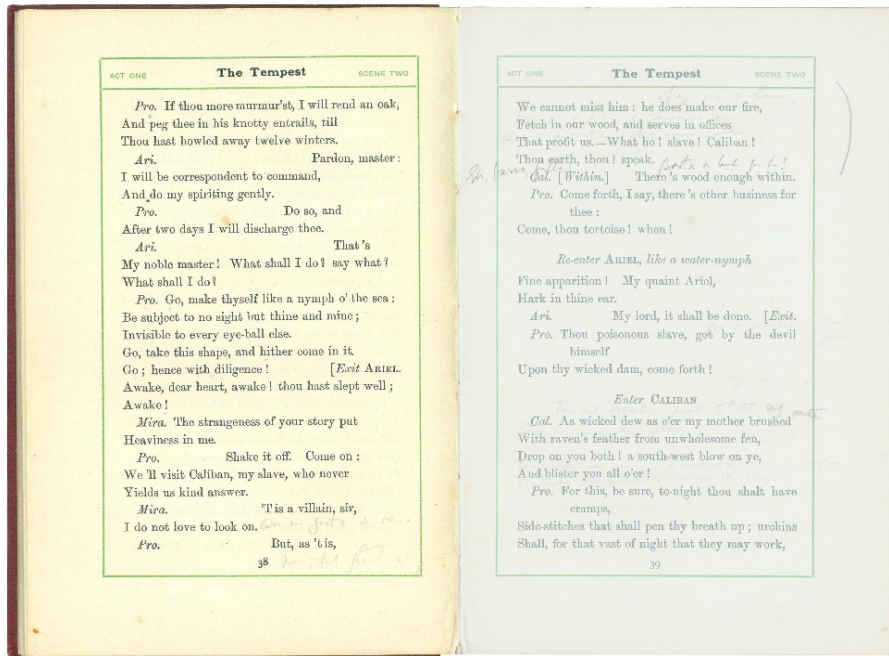 ACT ONE The Tempest SCENE TWO
Pro. If thou more murmur'st, I will rend an oak,
And peg thee in his knotty entrails, till
Thou hast howled away twelve winters.
Ari. Pardon, master :
I will be correspondent to command,
And do my spiriting gently.
Pro. Do so, and
After two days I will discharge thee.
Ari. That's
My noble master! What shall I do? say what?
What shall I do?
Pro. Go, make thyself like a nymph o' the sea :
Be subject to no sight but thine and mine ;
Invisible to every eye-ball else.
Go, take this shape, and hither come in it.
Go ; hence with diligence ! [Exit ARIEL.
Awake, dear heart, awake ! thou hast slept well ;
Awake !
Mira. The strangeness of your story put
Heaviness in me.
Pro. Shake it off. Come on :
We 'll visit Caliban, my slave, who never
Yields us kind answer.
Mira. 'T is a villain, sir,
I do not love to look on.
Pro. But, as 't is,
38
ACT ONE The Tempest SCENE TWO
We cannot miss him : he does make our fire,
Fetch in our wood, and serves in offices
That profit us.—What ho ! slave ! Caliban !
Thou earth, thou ! speak.
Cal. [Within.] There 's wood enough within.
Pro. Come forth, I say, there 's other business for
thee :
Come, thou tortoise ! when !
Re-enter ARIEL, like a water-nymph
Fine apparition ! My quaint Ariel,
Hark in thine ear.
Ari. My lord, it shall be done. [Exit.
Pro. Thou poisonous slave, got by the devil
himself
Upon thy wicked dam, come forth !
Enter CALIBAN
Cal. As wicked dew as e'er my mother brushed
With raven's feather from unwholesome fen,
Drop on you both ! a south-west blow on ye,
And blister you all o'er !
Pro. For this, be sure, to-night thou shalt have
cramps,
Side-stitches that shall pen thy breath up ; urchins
Shall, for that vast of night that they may work,
39